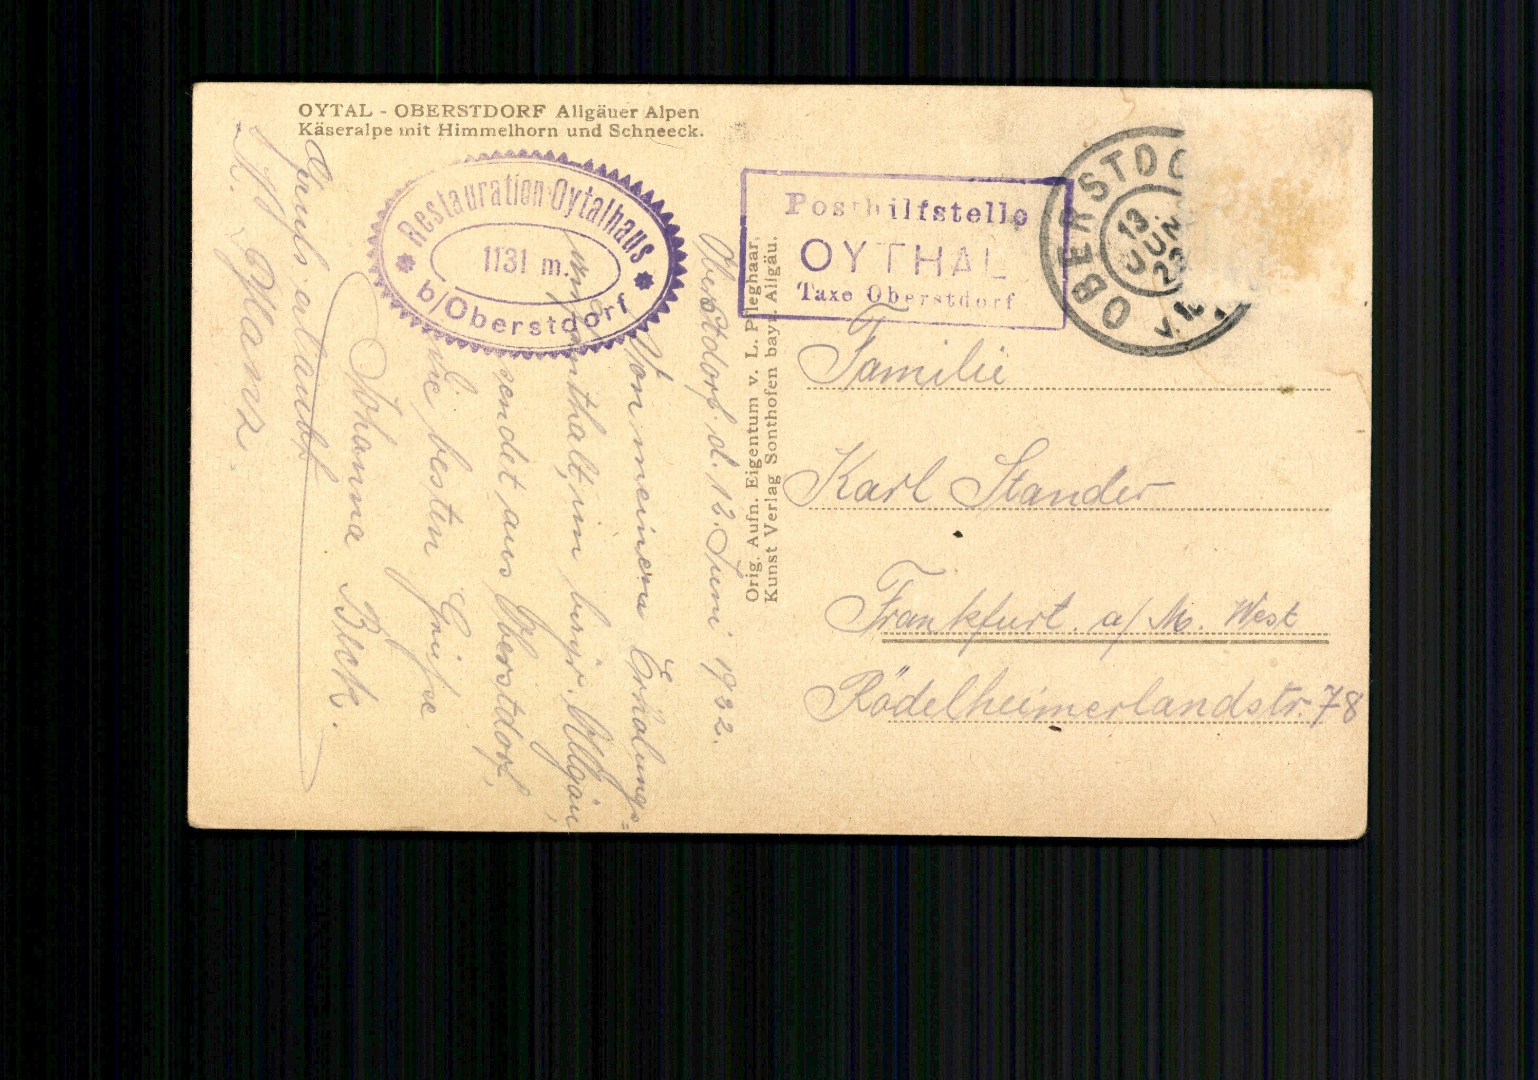 OYTAL - OBERSTDORF Allgäuer Alpen
Käseralpe mit Himmelhorn und Schneeck.
Restauration Oytalhaus
1131 m.
b/Oberstdorf
Posthilfstelle
OYTHAL
Taxe Oberstdorf
OBERSTDO
13
JUN
V.
Orig. Aufn. Eigentum v. L. Pfleghaar,
Kunst Verlag Sonthofen bayr. Allgäu.
Oberstdorf. d. 12. Juni 1932.
Von meinem Erholungs=
aufenthalt im bayr. Allgäu,
sendet aus Oberstdorf,
die besten Grüße
Johanna Beck.
Gruß erlaubt
Familie
Karl Stander
Frankfurt. a/M. West
Rödelheimerlandstr. 78